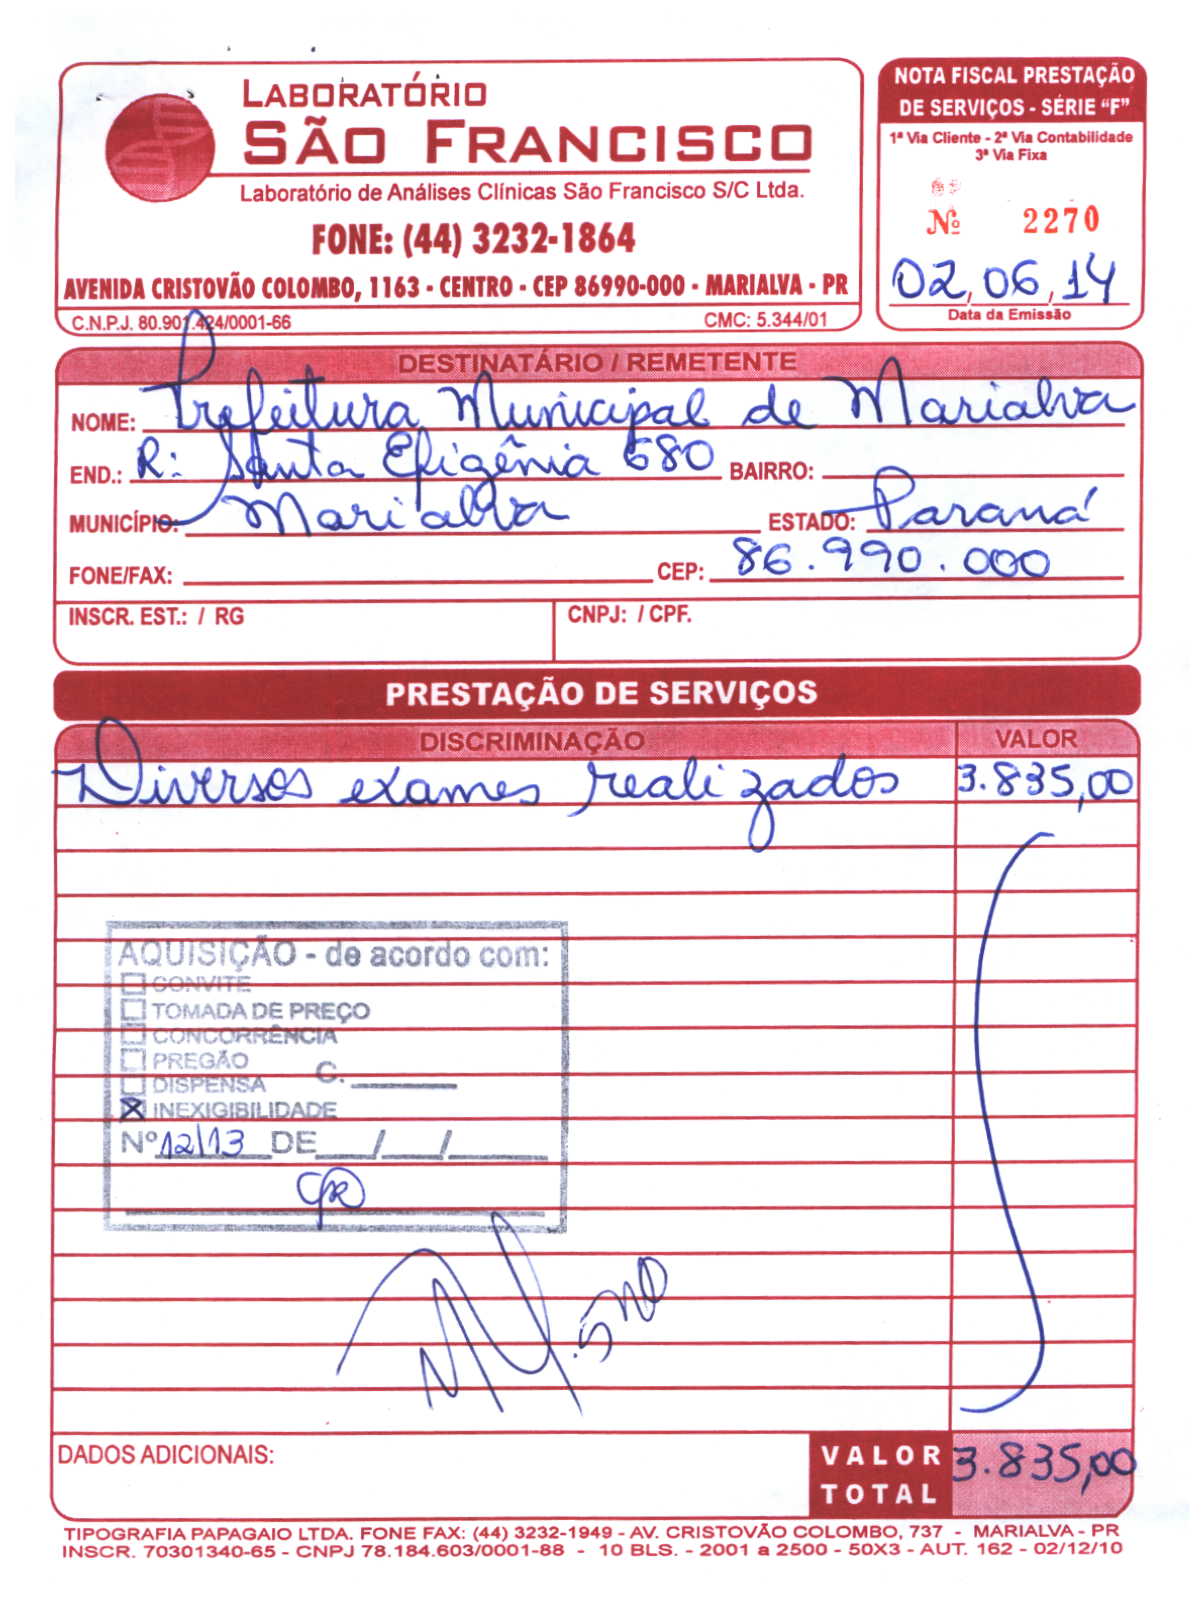 LABORATÓRIO
SÃO FRANCISCO
Laboratório de Análises Clínicas São Francisco S/C Ltda.
FONE: (44) 3232-1864
AVENIDA CRISTOVÃO COLOMBO, 1163 - CENTRO - CEP 86990-000 - MARIALVA - PR
C.N.P.J. 80.901.424/0001-66 CMC: 5.344/01
NOTA FISCAL PRESTAÇÃO
DE SERVIÇOS - SÉRIE “F”
1ª Via Cliente - 2ª Via Contabilidade
3ª Via Fixa
Nº 2270
02,06,14
Data da Emissão
DESTINATÁRIO / REMETENTE
NOME: Prefeitura Municipal de Marialva
END.: R: Santa Efigênia 680 BAIRRO:
MUNICÍPIO: Marialva ESTADO: Paraná
FONE/FAX: CEP: 86.990.000
INSCR. EST.: / RG CNPJ: / CPF.
PRESTAÇÃO DE SERVIÇOS
DISCRIMINAÇÃO VALOR
Diversos exames realizados 3.835,00
AQUISIÇÃO - de acordo com:
CONVITE
TOMADA DE PREÇO
CONCORRÊNCIA
PREGÃO
DISPENSA C.
INEXIGIBILIDADE
Nº 12/13 DE / /
DADOS ADICIONAIS: VALOR TOTAL 3.835,00
TIPOGRAFIA PAPAGAIO LTDA. FONE FAX: (44) 3232-1949 - AV. CRISTOVÃO COLOMBO, 737 - MARIALVA - PR
INSCR. 70301340-65 - CNPJ 78.184.603/0001-88 - 10 BLS. - 2001 a 2500 - 50X3 - AUT. 162 - 02/12/10